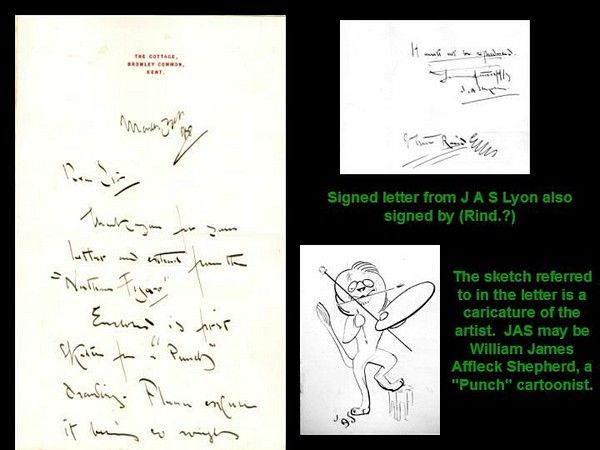 THE COTTAGE,
BROMLEY COMMON,
KENT.
Dear Sir
Thank you for your
letter and extract from the
Enclosed is first
sketch for a "Punch"
drawing. Please excuse
it being so rough
It must not be reproduced.
Signed letter from J A S Lyon also
signed by (Rind.?)
The sketch referred
to in the letter is a
caricature of the
artist. JAS may be
William James
Affleck Shepherd, a
"Punch" cartoonist.
JAS